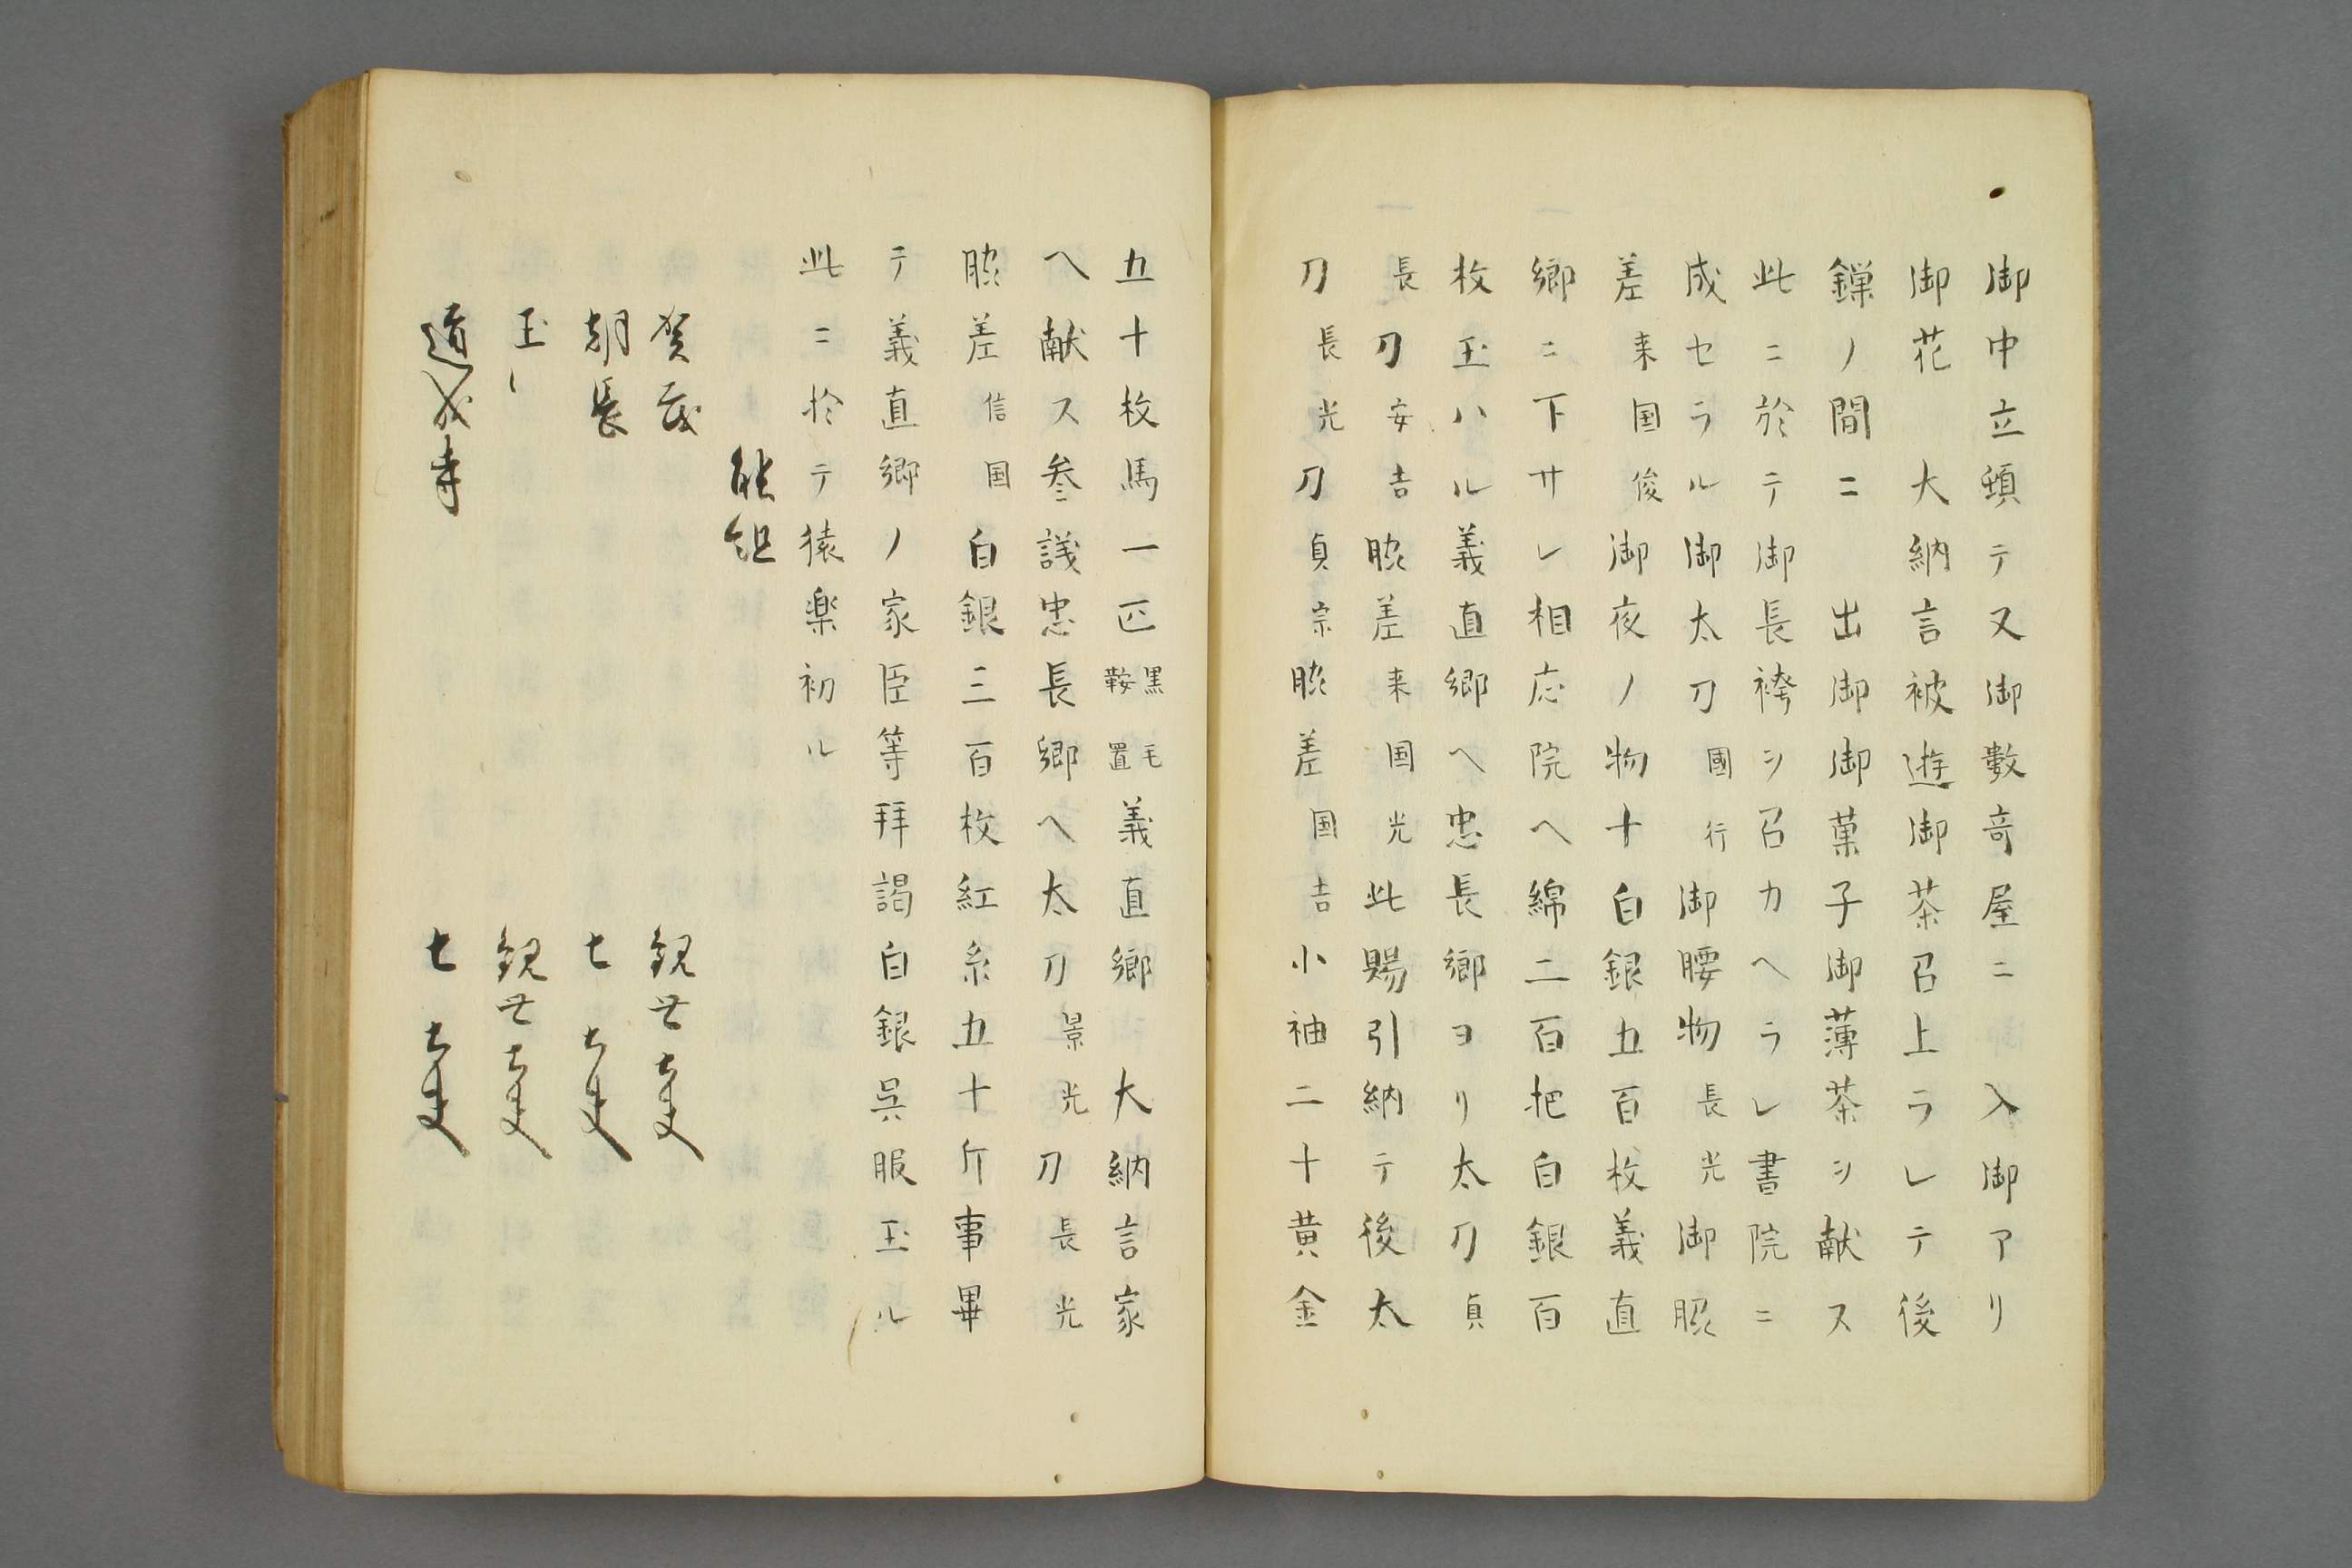 御中立頭テ又御數奇屋ニ　入御アリ
御花　大納言被遊御茶召上ラレテ後
鏁ノ間ニ　出御御菓子御薄茶ヲ献ス
此ニ於テ御長袴ヲ召カヘラレ書院ニ
成セラル御太刀國行御腰物長光御脇
差来国俊御夜ノ物十白銀五百枚義直
卿ニ下サレ相応院ヘ綿二百把白銀百
枚玉ハル義直卿ヘ忠長卿ヨリ太刀貞
長刀安吉脇差来国光此賜引納テ後太
刀長光刀貞宗脇差国吉小袖二十黄金
五十枚馬一疋黒毛鞍置義直卿　大納言家
ヘ献ス参議忠長卿ヘ太刀景光刀長光
脇差信国白銀三百枚紅糸五十斤事畢
テ義直卿ノ家臣等拝謁白銀呉服玉ル
此ニ於テ猿楽初ル
能組
賀茂　観世大夫
朝長　七大夫
玉〱　観世大夫
道成寺　七大夫